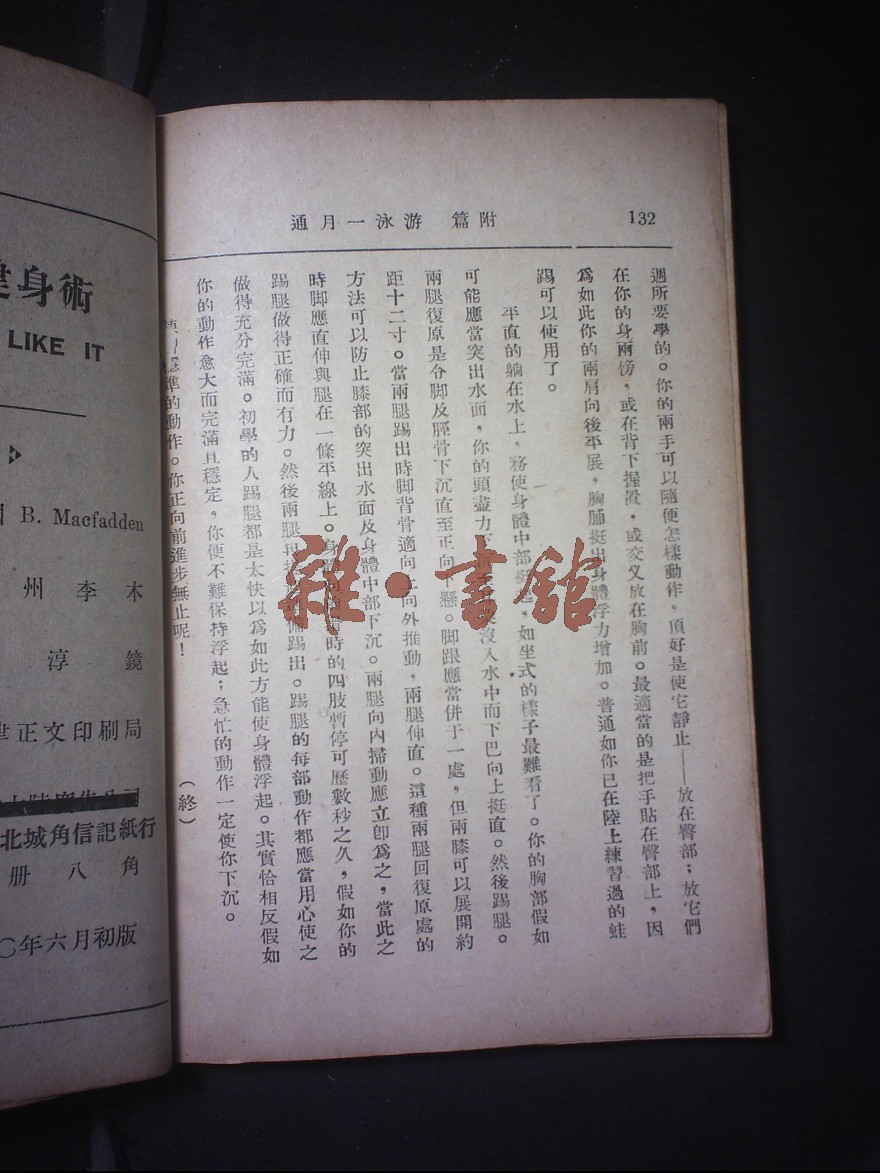 132
附篇 游泳一月通
週所要學的。你的兩手可以隨便怎樣動作。頂好是使它靜止——放在臀部;放它們
在你的身兩傍,或在背下握置,或交叉放在胸前。最適當的是把手貼在臀部上,因
爲如此你的兩肩向後平展,胸脯挺出身體浮力增加。普通如你已在陸上練習過的蛙
踢可以使用了。
平直的躺在水上,務使身體中部挺起,如坐式的樣子最難看了。你的胸部假如
可能應當突出水面,你的頭盡力下沉至沒入水中而下巴向上挺直。然後踢腿。
兩腿復原是分脚及脛骨下沉直至正向下懸。脚跟應當併于一處,但兩膝可以展開約
距十二寸。當兩腿踢出時脚背骨適向上向外推動,兩腿伸直。這種兩腿回復原處的
方法可以防止膝部的突出水面及身體中部下沉。兩腿向內掃動應立卽爲之,當此之
時脚應直伸與腿在一條平線上。身體時的四肢暫停可歷數秒之久,假如你的
踢腿做得正確而有力。然後兩腿再踢出。踢腿的每部動作都應當用心使之
做得充分完滿。初學的人踢腿都是太快以爲如此方能使身體浮起。其實恰相反假如
你的動作愈大而完滿且穩定,你便不難保持浮起;急忙的動作一定使你下沉。
準的動作。你正向前進步無止呢!
(終)
身術
LIKE IT
B. Macfadden
州李木
淳鏡
正文印刷局
北城角信記紙行
册八角
〇年六月初版
雜·書館